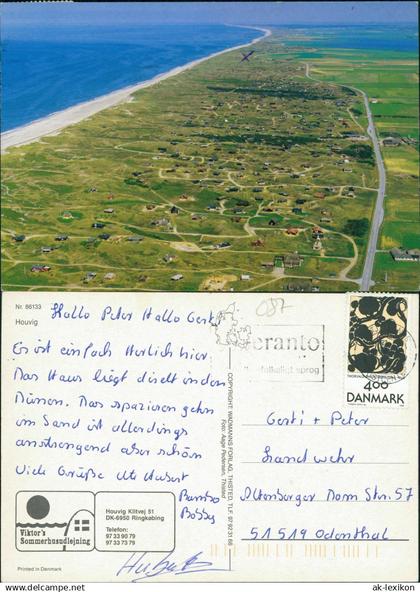 ak-lexikon
Nr. 86133
Houvig
Hallo Peter Hallo Gerti
Es ist einfach Herrlich hier.
Das Haus liegt direkt in den
Dünen. Das spazieren gehn
im Sand ist allerdings
anstrengend aber schön
Viele Grüße Ute Hubert
Bobby
Viktor's
Sommerhusudlejning
Houvig Klitvej 51
DK-6950 Ringkøbing
Telefon:
97 33 90 79
97 33 73 79
Printed in Denmark
COPYRIGHT WADMANNS FORLAG, THISTED, TLF. 97 92 31 68
Foto: Aage Pedersen, Thisted
087
eranto
folkeligt sprog
4.00
DANMARK
Gerti + Peter
Landwehr
Altenberger Dom Str. 57
51519 Odenthal
www.ak-lexikon.de